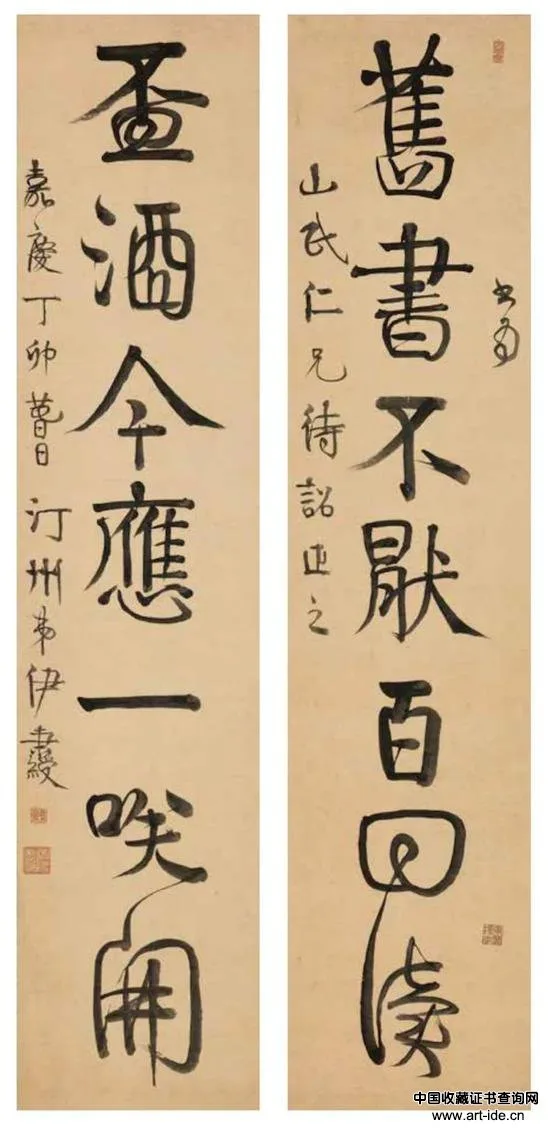 舊書不猒百回讀
書為
山民仁兄待詔正之
盃酒今應一咲開
嘉慶丁卯 汀州弟伊秉綬
中国收藏证书查询网
www.art-ide.cn